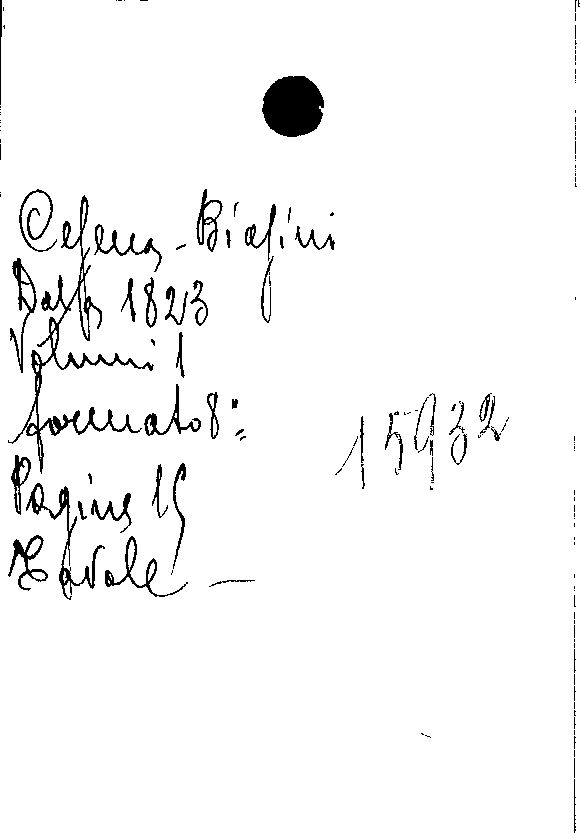 Cesena - Biasini
Data 1823
Volumi 1
formato 8°=
Pagine 15
Tavole —
15932